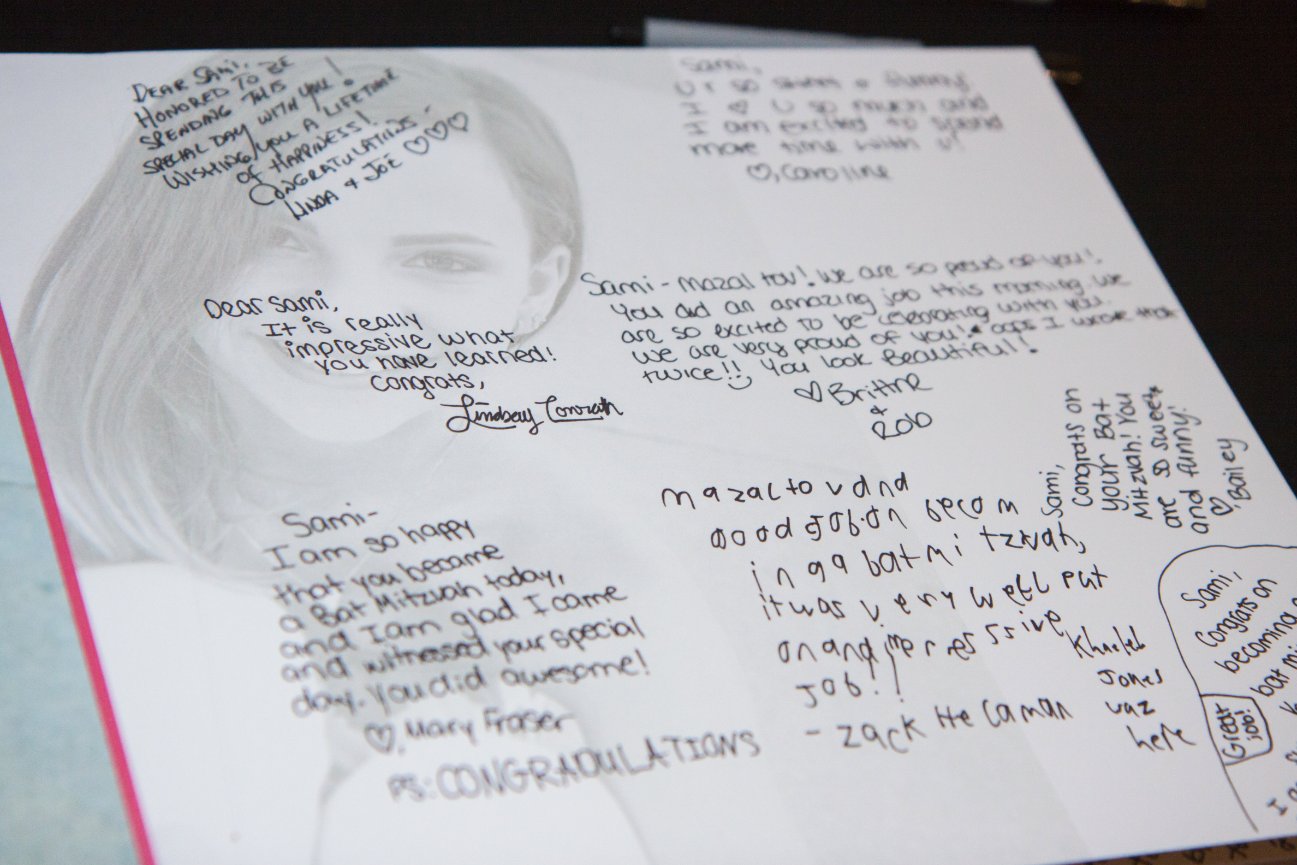 DEAR SAMI,
HONORED TO BE
SPENDING THIS
SPECIAL DAY WITH YOU!
WISHING YOU A LIFETIME
OF HAPPINESS!
CONGRATULATIONS-
LINDA & JOE ♡♡♡
Sami,
U r so & funny
I ♥ U so much and
I am excited to spend
more time with u!
♡, Caroline
Dear Sami,
It is really
impressive what
you have learned!
Congrats,
Lindsay
Sami - Mazal tov! We are so proud of you!
You did an amazing job this morning. We
are so excited to be celebrating with you.
We are very proud of you! oops I wrote that
twice!! You look Beautiful!
♡ Brittne
&
Rob
Sami,
Congrats on
your Bat
Mitzvah! You
are so sweet
and funny!
♡, Bailey
Sami-
I am so happy
that you became
a Bat Mitzvah today,
and I am glad I came
and witnessed your special
day. You did awesome!
♡, Mary Fraser
PS: CONGRADULATIONS
mazal tov and
good job on becom
ing a bat mitzvah,
it was very well put
on and impressive
job!!
- Zack Helaman
Khaleb
Jones
waz
here
Sami,
Congrats on
becoming a
bat mi
Great
job!
I a